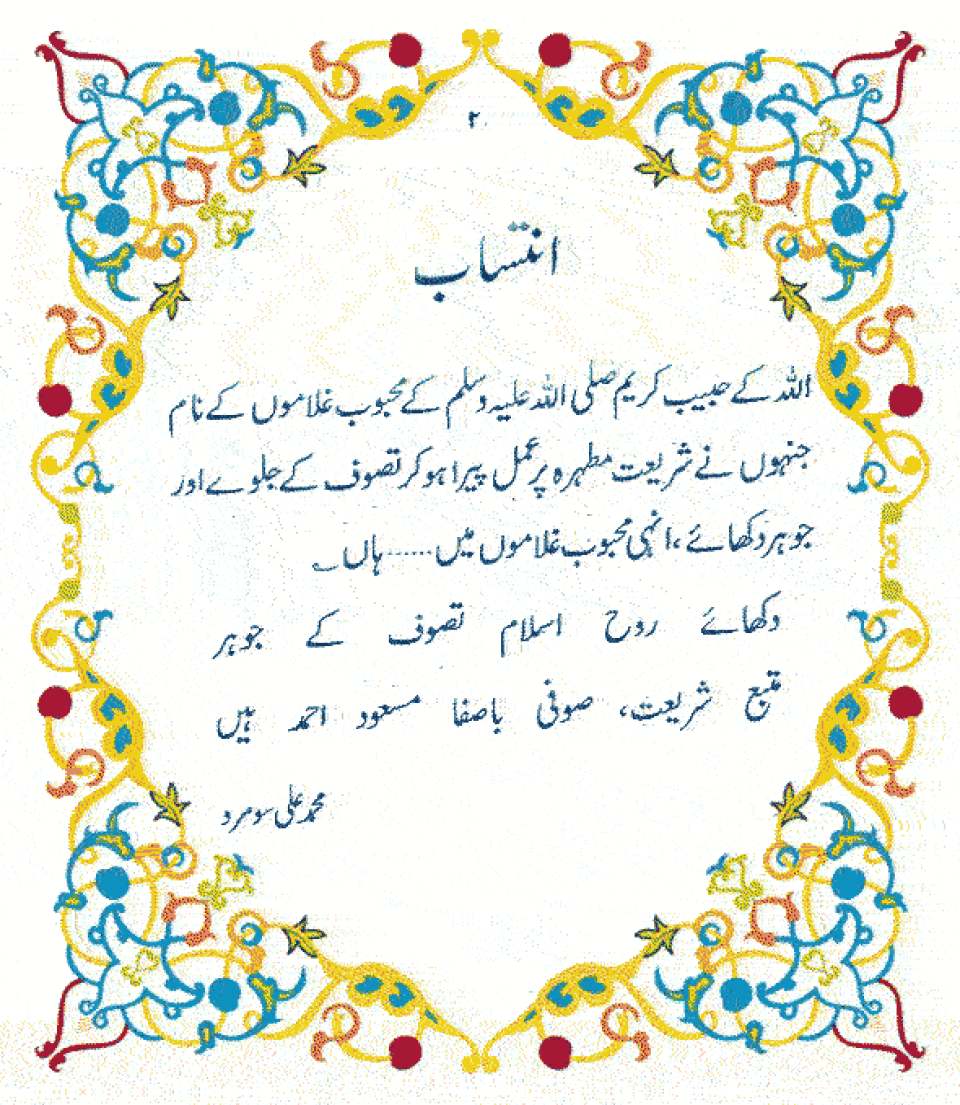 ۲
انتساب
اللہ کے حبیب کریم صلی اللہ علیہ وسلم کے محبوب غلاموں کے نام
جنہوں نے شریعت مطہرہ پر عمل پیرا ہو کر تصوف کے جلوے اور
جوہر دکھائے، انہی محبوب غلاموں میں...... ہاں ؂
دکھائے روح اسلام تصوف کے جوہر
متبع شریعت، صوفی باصفا مسعود احمد ہیں
محمد علی سومرو